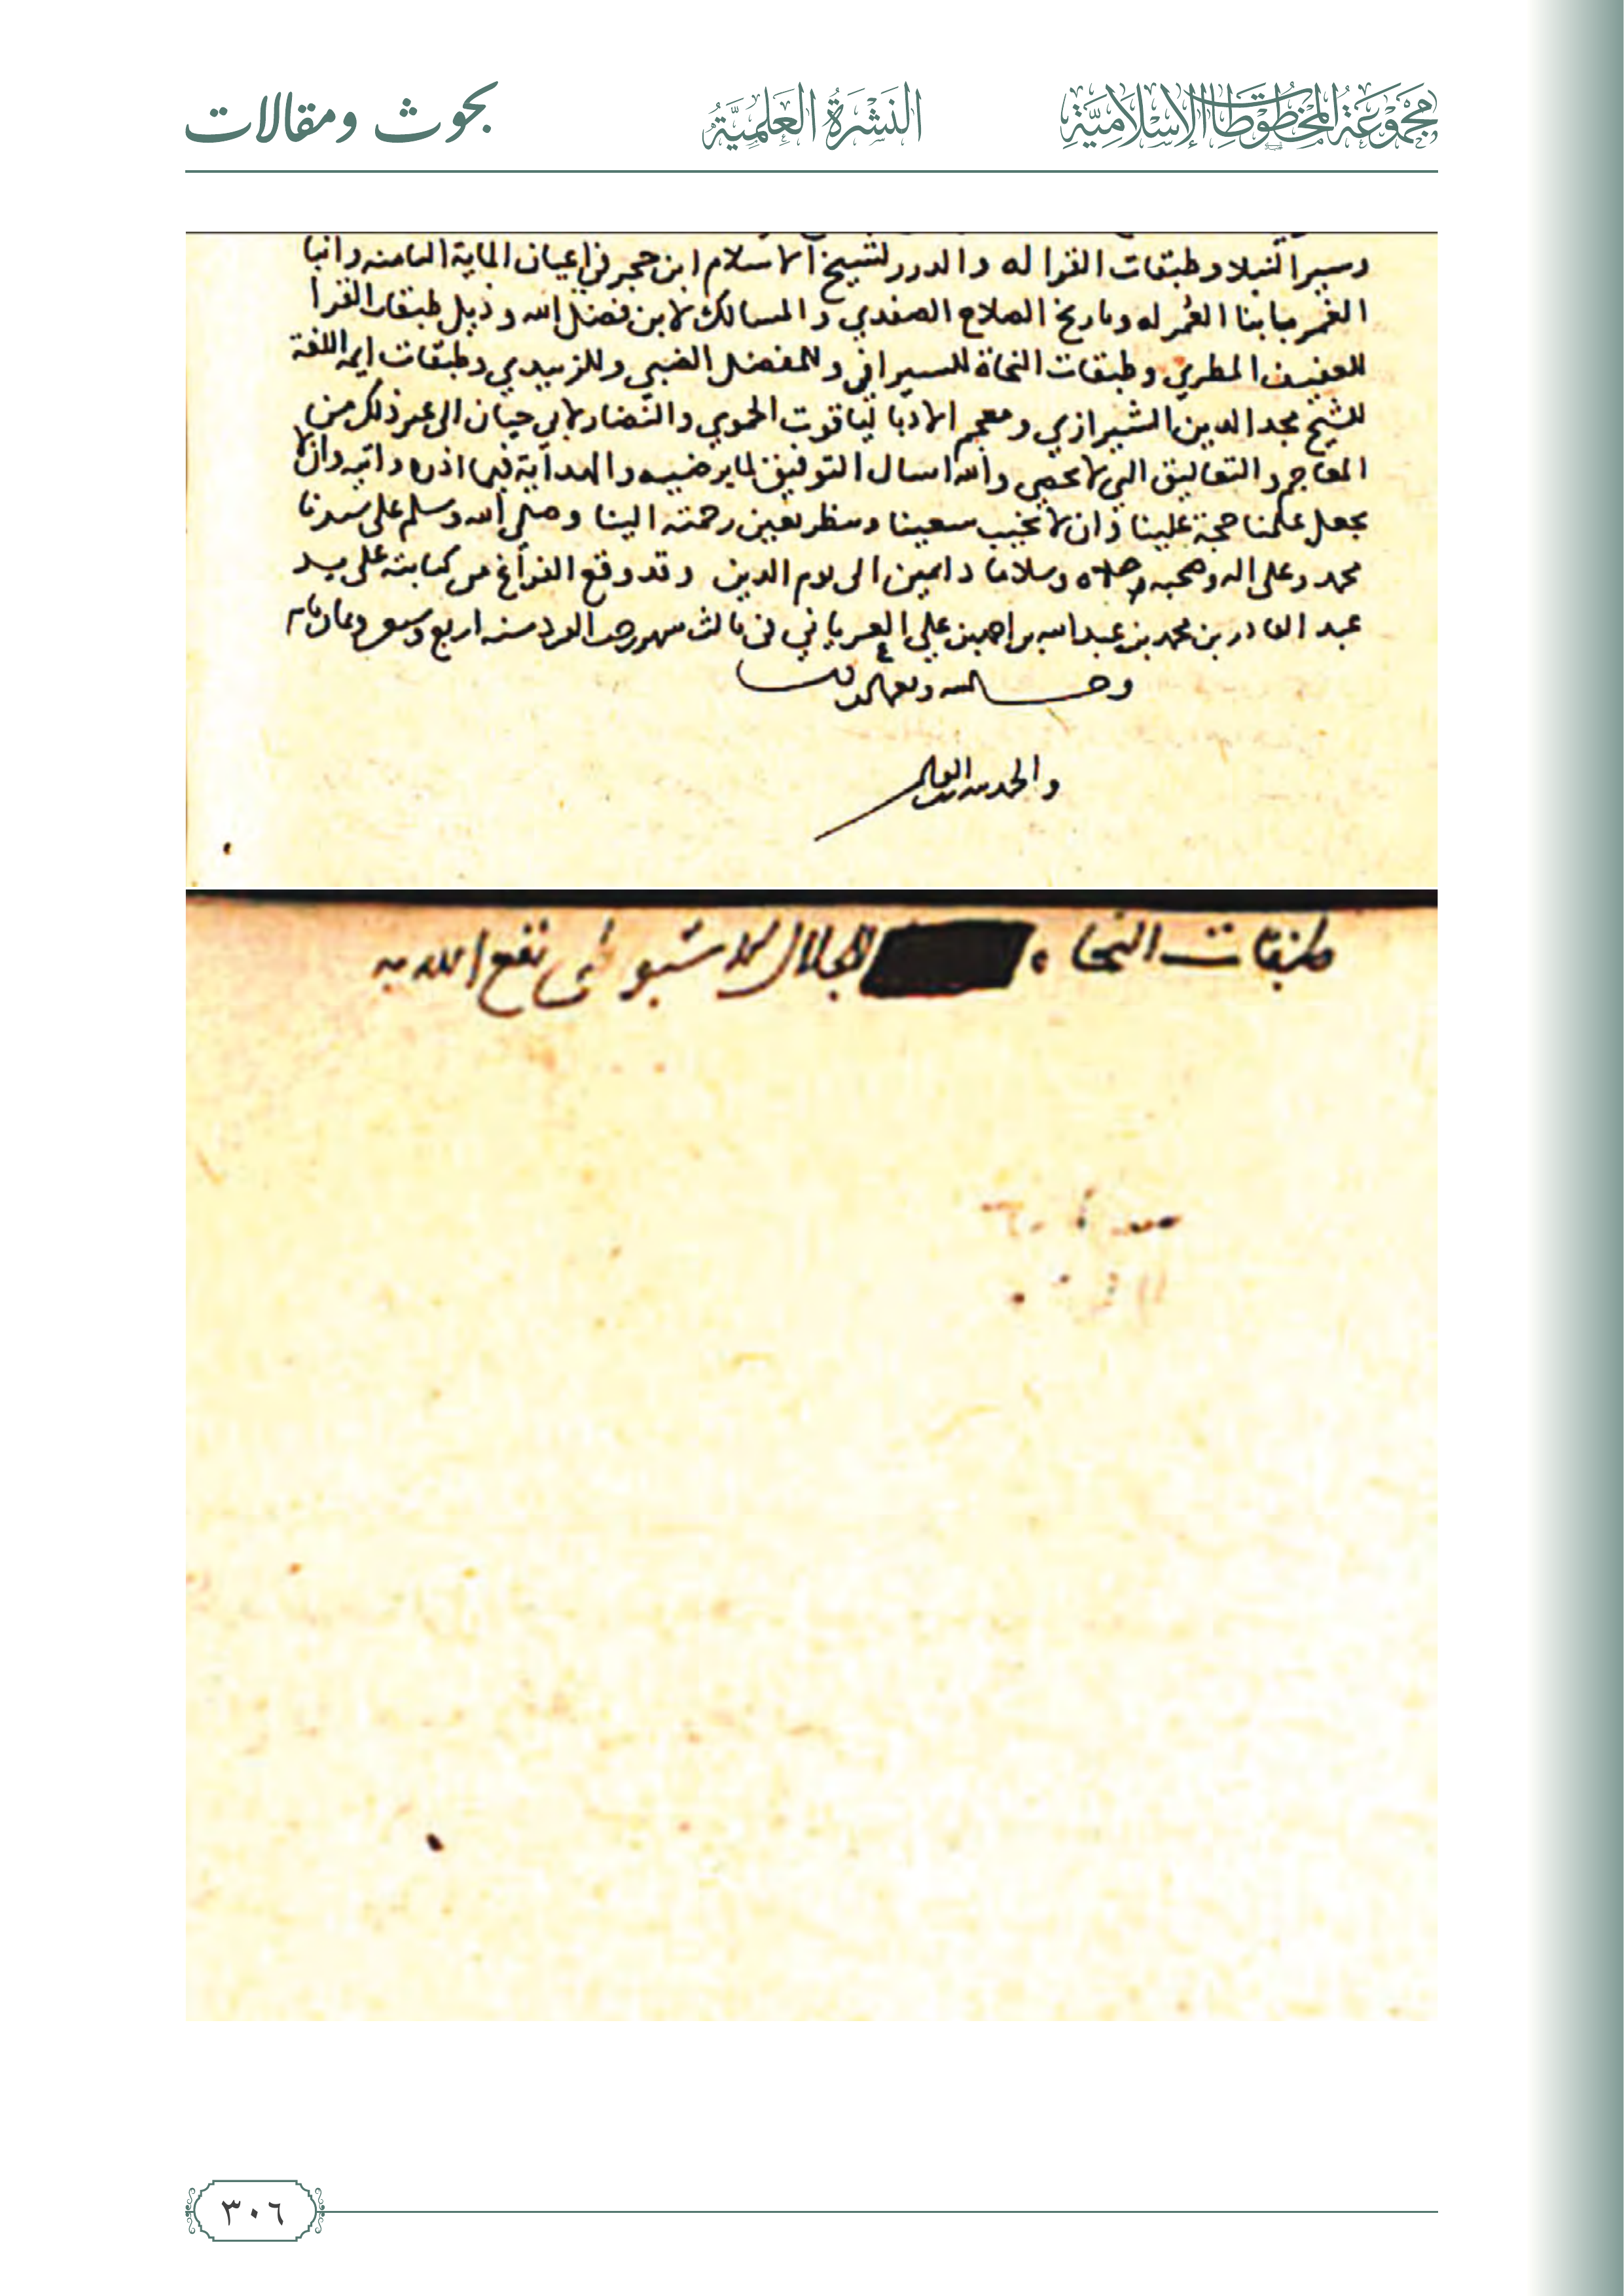 مجموعة المخطوطات الإسلامية
النشرة العلمية
بحوث ومقالات
وسير النبلا وطبقات القرا له والدرر لشيخ الاسلام ابن حجر في اعيان الماية الثامنه وانبا
الغمر بابنا العمر له وتاريخ الصلاح الصفدي والمسالك لابن فضل الله وذيل طبقات القرا
للعفيف المطري وطبقات النحاة للسيرافي وللمفضل الضبي وللزبيدي وطبقات ايمه اللغة
للشيخ مجد الدين الشيرازي ومعجم الادبا لياقوت الحموي والنضار لابي حيان الى غير ذلك من
المعاجم والتعاليق التي لا تحصى والله اسال التوفيق لما يرضيه والهداية فيما اذره واتيه وان لا
يجعل علمنا حجة علينا وان لا يخيب سعينا وينظر بعين رحمته الينا وصلى الله وسلم على سيدنا
محمد وعلى اله وصحبه صلاه وسلاما دايمين الى يوم الدين وقد وقع الفراغ من كتابته على يد
عبد القادر بن محمد بن عبد الله بن علي في ثالث شهر رجب الفرد سنه اربع
والحمد لله رب العالمين
طبقات النحاه للجلال الاسيوطي نفع الله به
٣٠٦